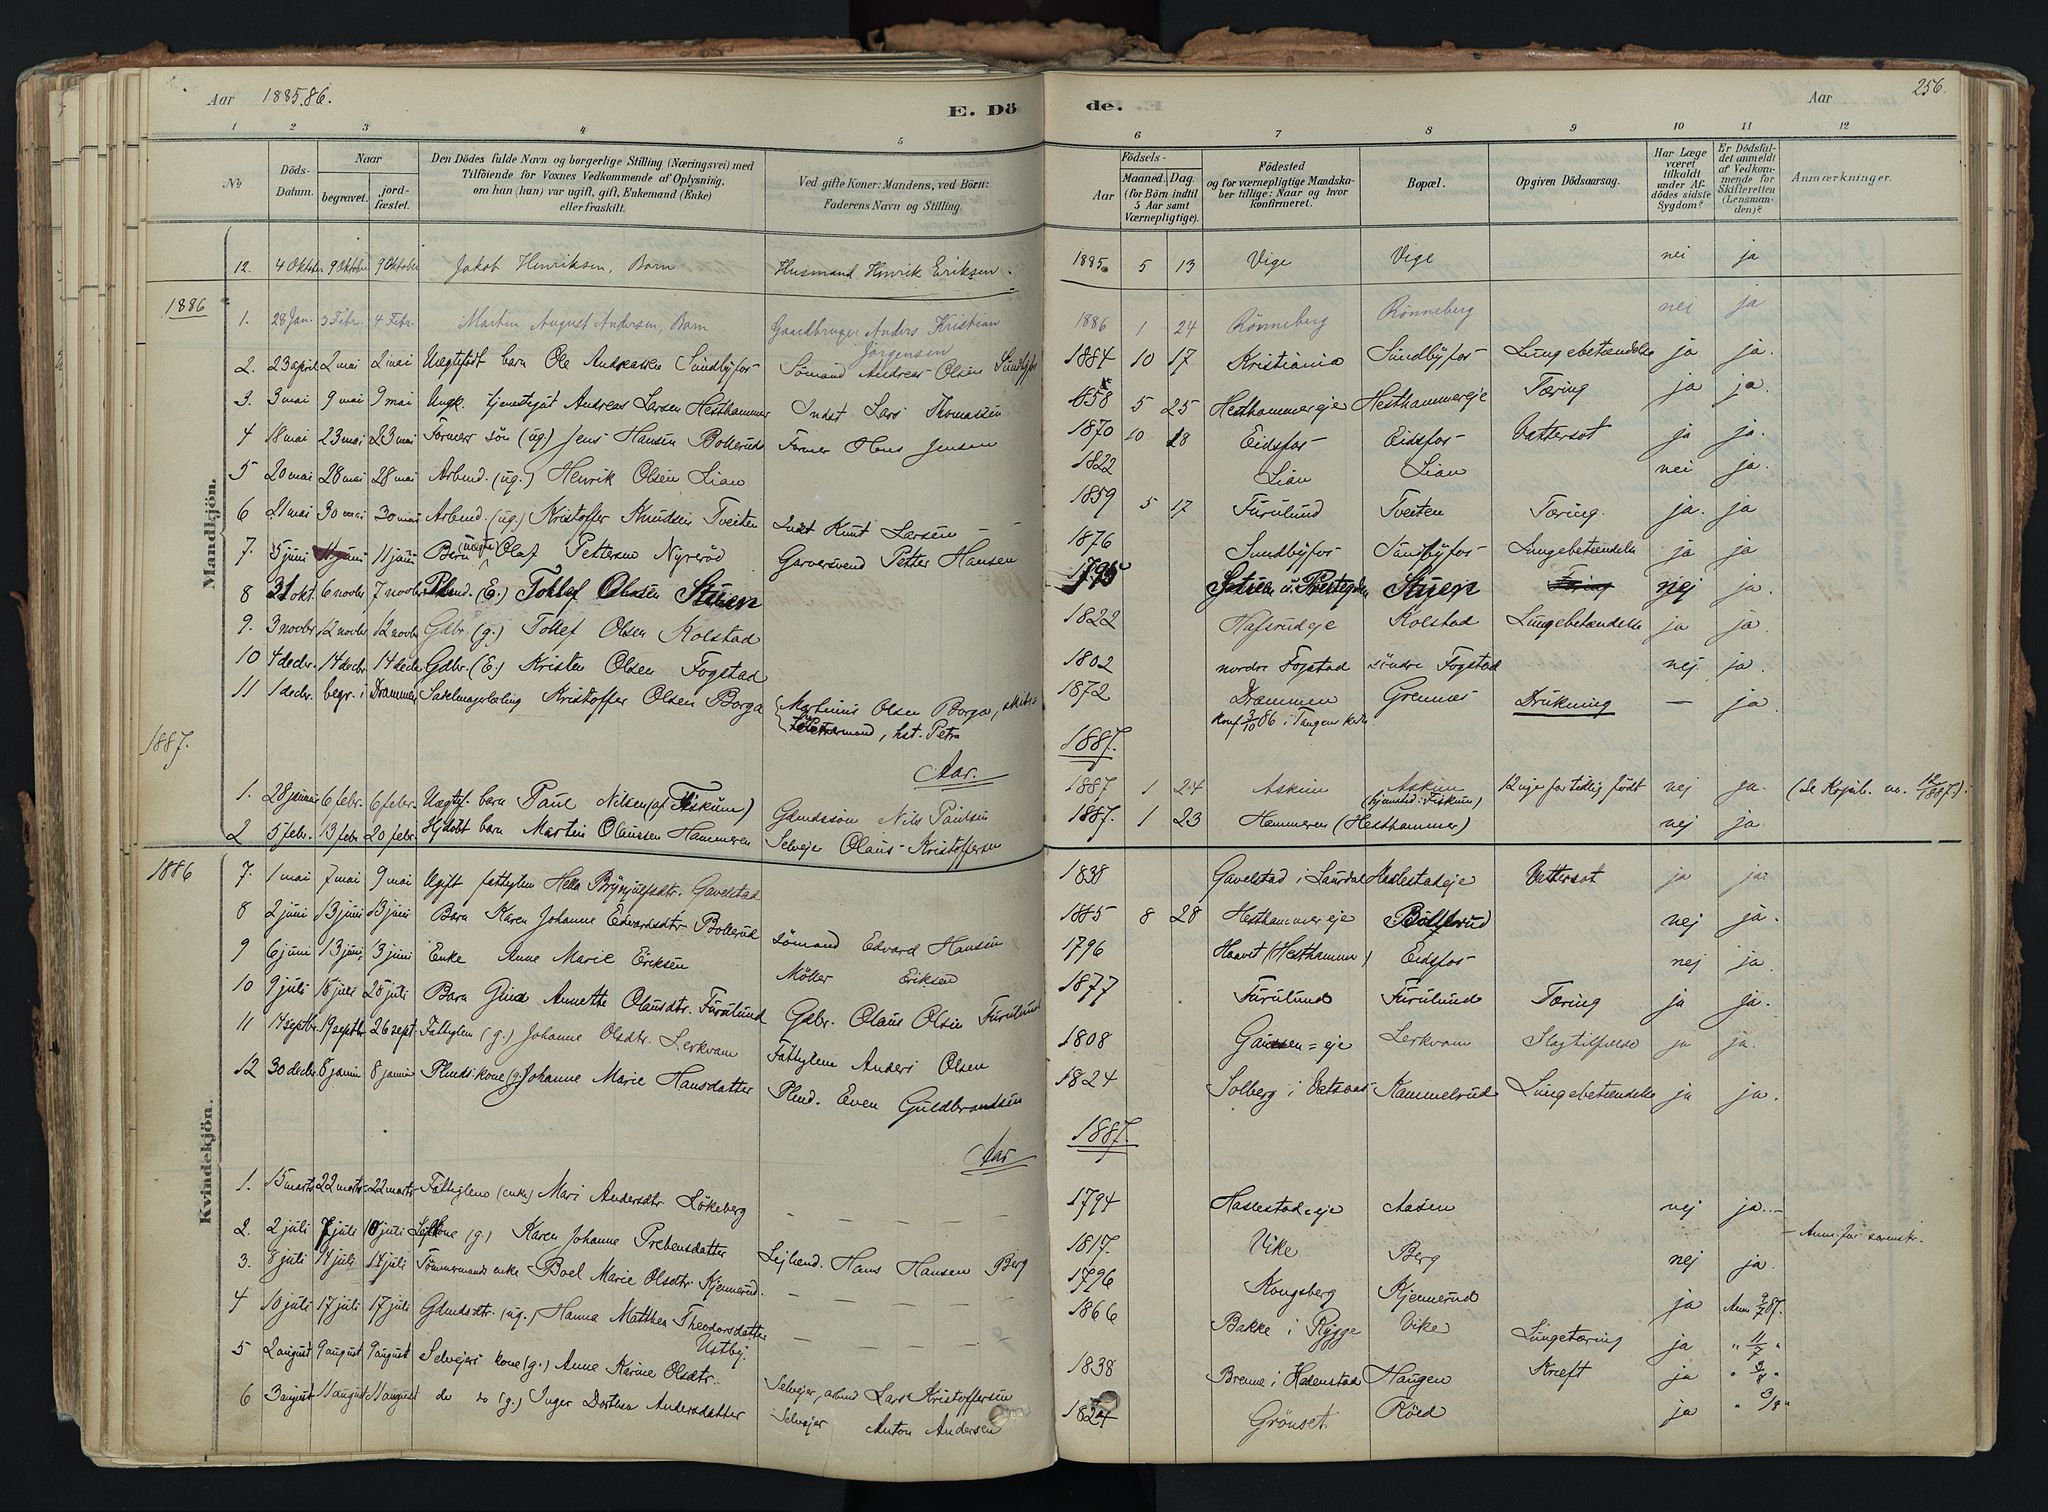 Aar 1885.86. E. Dö de. Aar 256.
1 2 3 4 5 6 7 8 9 10 11 12
No Döds-Datum. Naar begravet. jordfæstet. Den Dödes fulde Navn og borgerlige Stilling (Næringsvei) med Tilföiende for Voxnes Vedkommende af Oplysning, om han (hun) var ugift, gift, Enkemand (Enke) eller fraskilt. Ved gifte Koner: Mandens, ved Börn: Faderens Navn og Stilling. Födsels- Aar Maaned. Dag. (for Börn indtil 5 Aar samt Værnepligtige). Födested og for værnepligtige Mandskaber tillige: Naar og hvor konfirmeret. Bopæl. Opgiven Dödsaarsag. Har Læge været tilkaldt under Afdödes sidste Sygdom? Er Dödsfaldet anmeldt af Vedkommende for Skifteretten (Lensmanden)? Anmærkninger.
Mandkjön.
12. 4 Oktober 9 Oktober 9 Oktober Jakob Henriksen, Barn Husmand Henrik Eriksen. 1885. 5 13 Vige Vige nei ja
1886
1. 28 Jan. 3 Febr. 4 Febr. Martin August Andersen, Barn Gaardbruger Anders Kristian Jörgensen 1886 1 24 Rönneberg Rönneberg nei ja
2. 23 april 2 mai 2 mai Uægtefödt barn Ole Andreassen Sundbyfos Sömand Andreas Olsen Sundbyfos 1884 10 17 Kristiania Sundbyfos Lungebetændelse ja ja.
3. 3 mai 9 mai 9 mai Ungk. tjenestegut Andreas Larsen Hesthammer Indst Lars Thomassen 1858 5 25 Hesthammereje Hesthammereje Tæring ja ja.
4 18 mai 23 mai 23 mai Formers sön (ug.) Jens Hansen Bollerud Former Hans Jensen 1870 10 18 Eidsfos Eidsfos Vattersot ja ja.
5 20 mai 28 mai 28 mai Arbmd. (ug.) Henrik Olsen Lian 1822 Lian Lian nei ja.
6 21 mai 30 mai 30 mai Arbmd. (ug.) Kristoffer Knudsen Tveiten Indst Knut Larsen 1859 5 17 Furulund Tveiten Tæring. ja. ja
7. 5 juni 11 juni 11 juni Barn (uægte) Olaf Pettersen Nyreröd Garversvend Petter Hansen 1876 Sundbyfos Sundbyfos Lungebetændelse ja ja
8 31 okt. 6 novbr 7 novbr. Plmd. (E.) Tollef Olsen Stuen 1795 Stuen nej ja.
9. 3 novbr 12 novbr 12 novbr Gdbr. (g.) Tollef Olsen Kolstad 1822 Hafsrudeje Kolstad Lungebetændelse ja ja
10 4 decbr. 14 decbr. 14 decbr. Gdbr. (E.) Kristen Olsen Fogstad 1802 nordre Fogstad söndre Fogstad nej ja.
11 1 decbr. begr. i Drammen Sadelmagerlærling Kristoffer Olsen Borga Martinius Olsen Borga, hst. Petra 1872 Drammen Konf 3/10 86 i Tangens kirke. Grennes Drukning — ja
1887. Aar. 1887.
1. 28 januar 6 febr. 6 febr. Uægtef. barn Paul Nilsen (af Fiskum) Gdmdssön Nils Paulsen 1887 1 24 Askim Askim (hjemsted: Fiskum) 12 uge for tidlig födt nej ja. 12/1887.).
2 5 febr. 13 febr 20 febr. Hjdöbt barn Martin Olaussen Hammeren Selvejer Olaus Kristoffersen 1887. 1 23 Hammeren (Hesthammer) nej ja
Kvindekjön.
1886 7. 1 mai 7 mai 9 mai Ugift fattiglem Hella Brynjulfsdtr. Gavelstad 1838 Gavelstad i Laurdal Haslestadeje Vattersot ja ja.
8 2 juni 13 juni 13 juni Barn Karen Johanne Edvardsdtr Bollerud Sömand Edvard Hansen 1885 8 28 Hesthammereje Bollerud nej ja.
9 6 juni 13 juni 13 juni Enke Anne Marie Eriksen Möller Eriksen 1796 Haavet (Hesthammer) Eidsfos nej ja.
10 9 juli 18 juli 25 juli Barn Gina Annette Olausdtr. Furulund Gdbr. Olaus Olsen Furulund 1877 Furulund Furulund Tæring ja ja.
11 14 septbr 19 septbr. 26 sept. Fattiglem (g.) Johanne Olsdtr. Lerkvam Fattiglem Anders Olsen 1808 eje Lerkvam Slagtilfælde ja ja.
12 30 decbr. 8 januar 8 januar Plmds kone (g.) Johanne Marie Hansdatter Plmd. Even Guldbrandsen 1824 Solberg i Botne Kammelrud Lungebetændelse ja ja.
Aar 1887.
1. 15 marts 22 marts 22 marts Fattiglem (enke) Mari Andersdtr Lökeberg 1794 Haslestadeje Aasen nej ja.
2. 2 juli 7 juli 10 juli kone (g.) Karen Johanne Prebensdatter Lejlend. Hans Hansen Berg 1817. Vike Berg nej ja.
3. 8 juli 14 juli 17 juli Tömmermands enke Boel Marie Olsdtr. Kjennerud. 1796 Kongsberg Kjennerud ja Anm. 9/7 87.
4 10 juli 17 juli 17 juli Gdmdsdtr. (ug.) Hanna Mathea Theodorsdatter Ustby. 1866 Bakke i Rygge Vike Lungetæring ja " 11/7 "
5 2 august 9 august 9 august Selvejers kone (g.) Anne Karine Olsdtr. Selvejer, arbmd Lars Kristoffersen 1838 Haugen Kræft ja " 3/8 "
6 3 august 11 august 11 august do do (g.) Inger Dorthea Andersdatter Selvejer Anton Andersen 1824 Grönset. Röed ja " 3/8 "